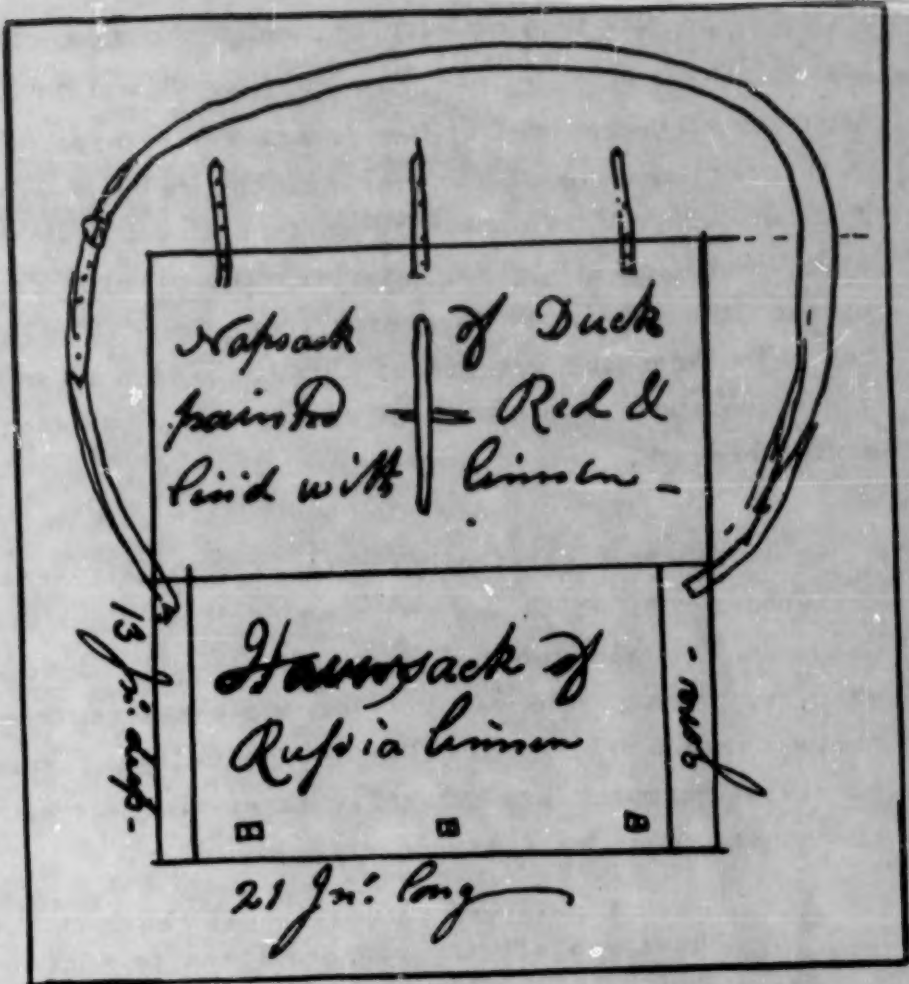 Napsack of Duck
painted Red &
lin'd with linnen -
Haversack of
Ruſsia linnen
13 In: deep -
21 In: long